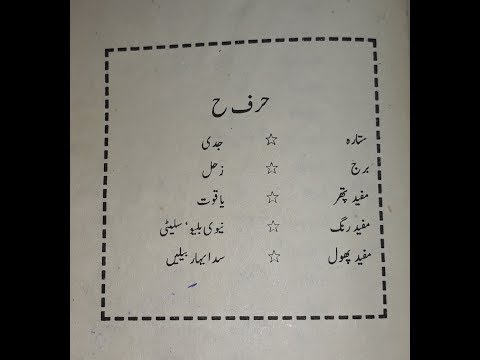 حرف ح
ستارہ ☆ جدی
برج ☆ زحل
مفید پتھر ☆ یاقوت
مفید رنگ ☆ نیوی بلیو، سلیٹی
مفید پھول ☆ سدا بہار بیلیں